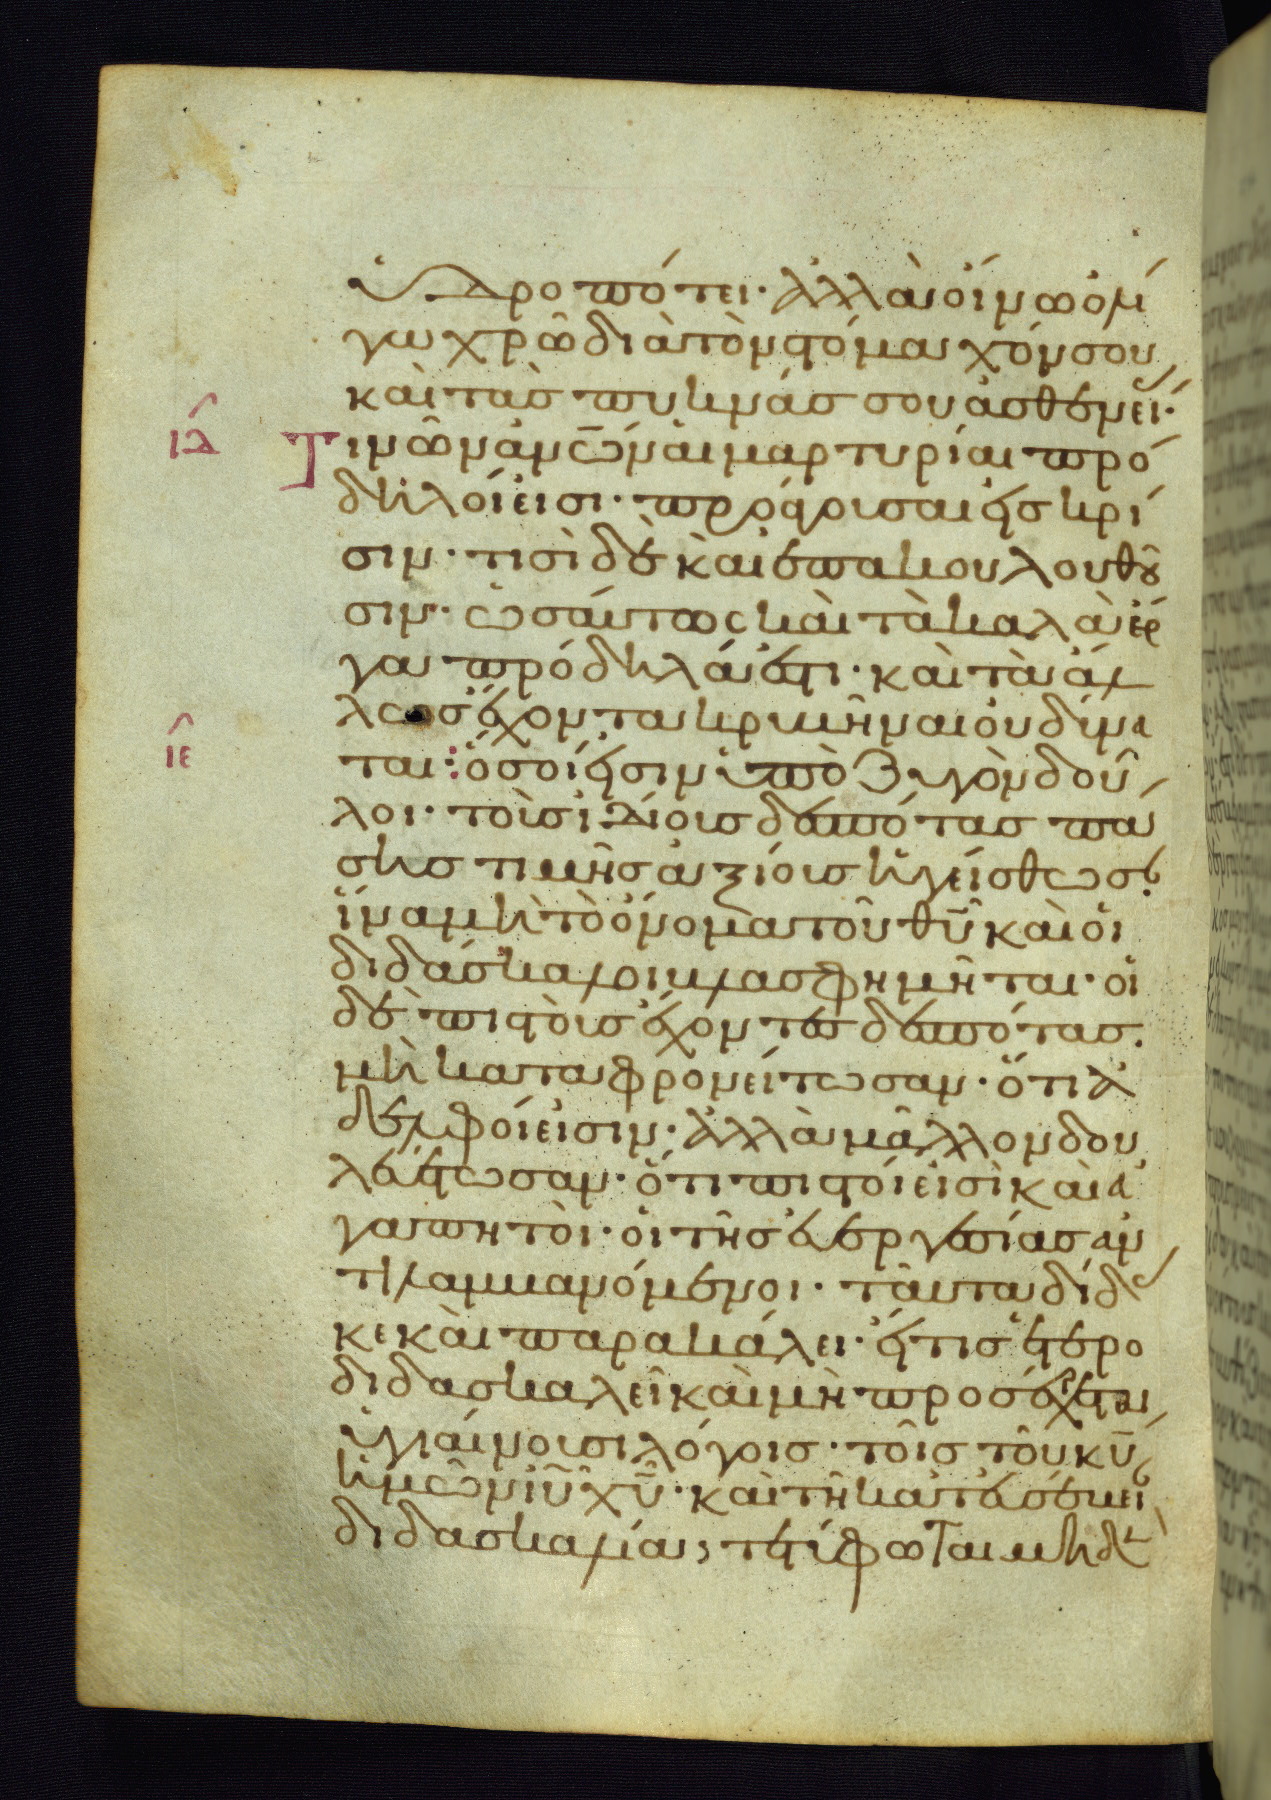 ὑδροπότει· ἀλλὰ οἴνω ὀλί
γω χρῶ διὰ τὸν στόμαχόν σου
καὶ τὰς πυκνάς σου ἀσθενεί·
ιδ Τινῶν ἀνῶν αἱ μαρτυρίαι πρό
δηλοί εἰσι· προάγουσαι εἰς κρί
σιν· τισὶ δὲ καὶ ἐπακουλουθοῦ
σιν· ὡσαύτως καὶ τὰ καλὰ ἔρ
γα πρόδηλά ἐστι· καὶ τὰ ἄλ
λως ἔχοντα κρυβῆναι οὐ δύνα
ιε ται: ὅσοι εἰσὶν ὑπὸ ζυγὸν δοῦ
λοι· τοὺς ἰδίους δεσπότας πά
σης τιμῆς ἀξίους ἡγείσθωσ·
ἵνα μὴ τὸ ὄνομα τοῦ θῦ καὶ οἱ
διδάσκαλοι βλασφημῆται· οἱ
δὲ πιστοὺς ἔχοντες δεσπότας·
μὴ καταφρονείτωσαν· ὅτι ἀ
δελφοί εἰσιν· ἀλλὰ μᾶλλον δου
λευέτωσαν· ὅτι πιστοί εἰσὶ καὶ ἀ
γαπητοὶ· οἱ τῆς εὐεργεσίας ἀν
τιλαμβανόμενοι· ταῦτα δίδα
κε καὶ παρακάλει· εἴ τις ἑτερο
διδασκαλεῖ καὶ μὴ προσέρχεται
ὑγιαίνουσι λόγοις· τοῖς τοῦ κῦ
ἡμῶν ἰῦ χῦ· καὶ τῆ κατ' εὐσέβει
διδασκαλία, τετύφωται μηδὲ